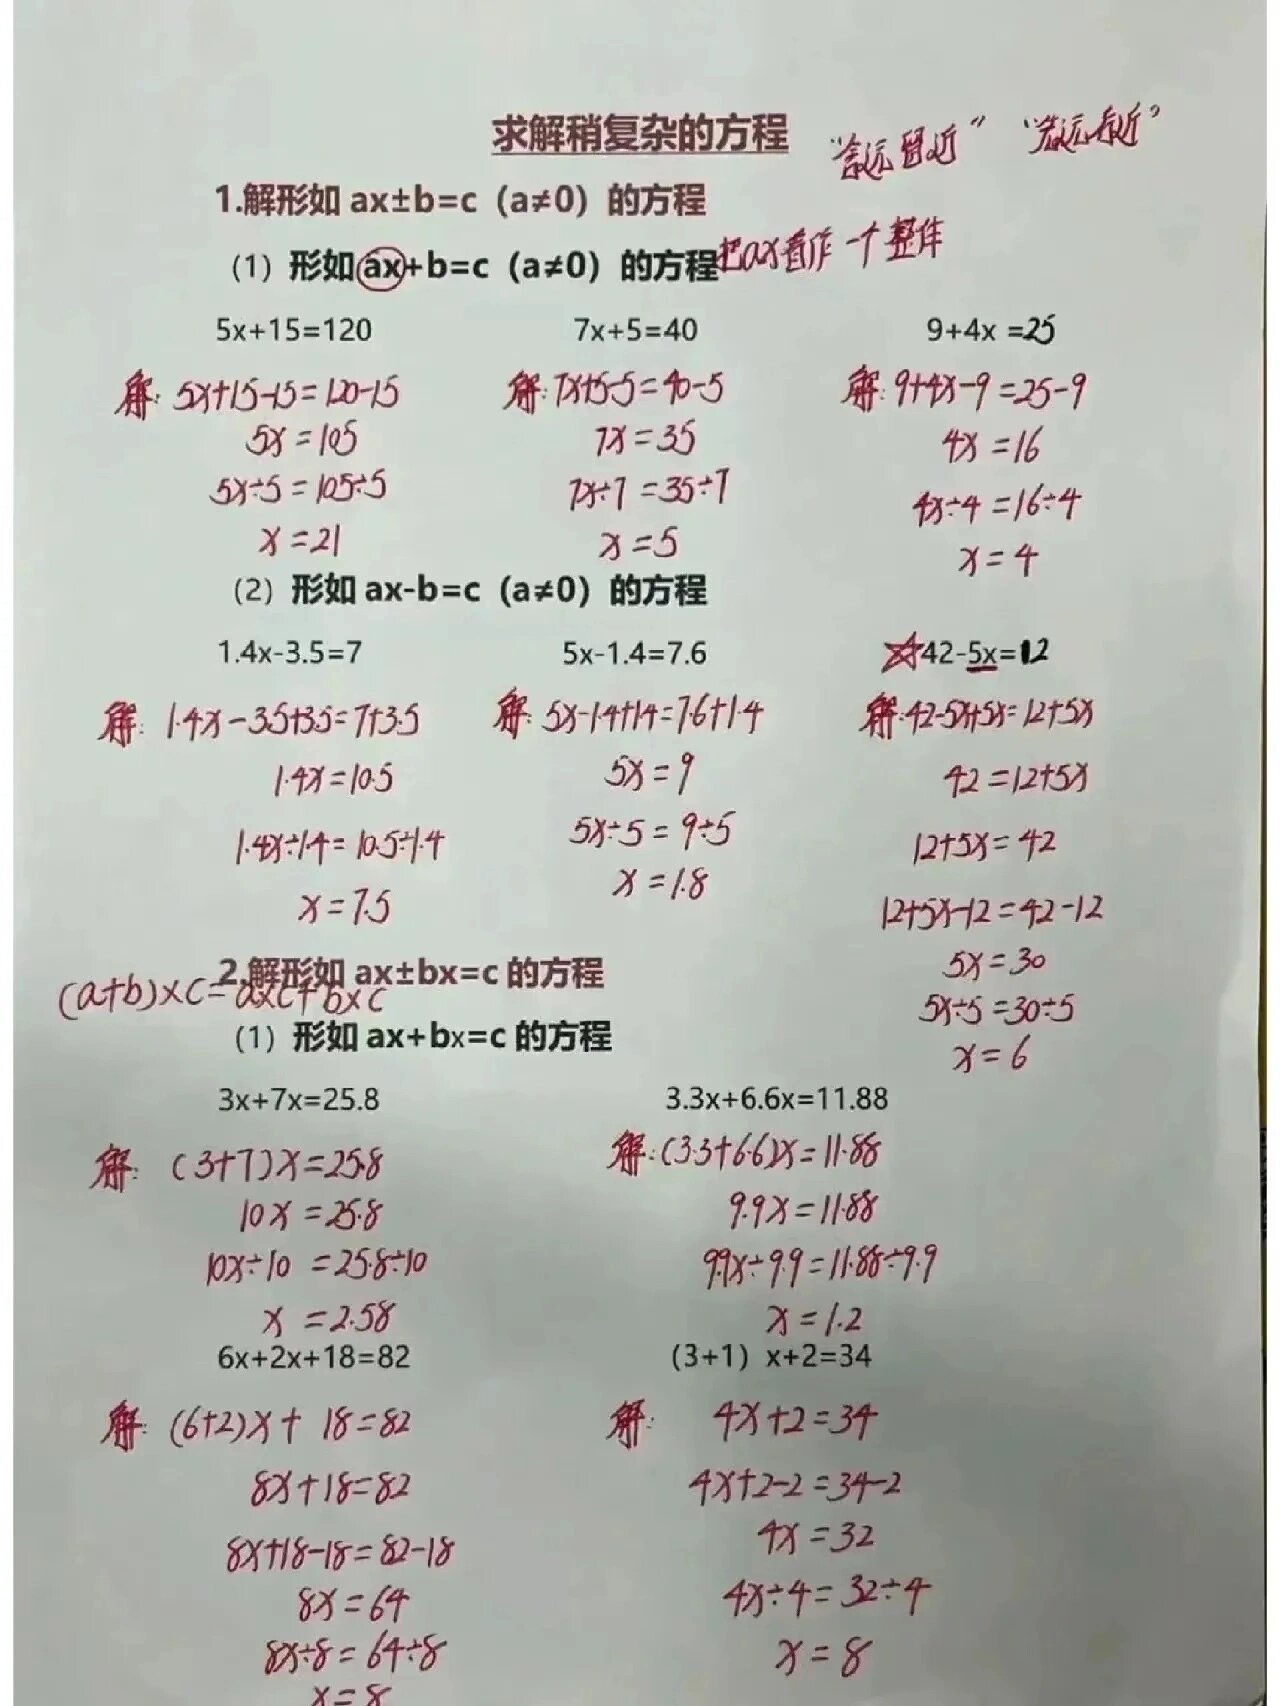 求解稍复杂的方程 “舍远留近” “先远后近”
1.解形如 ax±b=c（a≠0）的方程
（1）形如 ax+b=c（a≠0）的方程 把ax看作一个整体
5x+15=120 7x+5=40 9+4x =25
解: 5x+15-15=120-15 解: 7x+5-5=40-5 解: 9+4x-9=25-9
5x=105 7x=35 4x=16
5x÷5=105÷5 7x÷7=35÷7 4x÷4=16÷4
x=21 x=5 x=4
（2）形如 ax-b=c（a≠0）的方程
1.4x-3.5=7 5x-1.4=7.6 ☆42-5x=12
解: 1.4x-3.5+3.5=7+3.5 解: 5x-1.4+1.4=7.6+1.4 解: 42-5x+5x=12+5x
1.4x=10.5 5x=9 42=12+5x
1.4x÷1.4=10.5÷1.4 5x÷5=9÷5 12+5x=42
x=7.5 x=1.8 12+5x-12=42-12
5x=30
5x÷5=30÷5
x=6
2.解形如 ax±bx=c 的方程
(a+b)×c=a×c+b×c
（1）形如 ax+bx=c 的方程
3x+7x=25.8 3.3x+6.6x=11.88
解: (3+7)x=25.8 解: (3.3+6.6)x=11.88
10x=25.8 9.9x=11.88
10x÷10=25.8÷10 9.9x÷9.9=11.88÷9.9
x=2.58 x=1.2
6x+2x+18=82 （3+1）x+2=34
解: (6+2)x+18=82 解: 4x+2=34
8x+18=82 4x+2-2=34-2
8x+18-18=82-18 4x=32
8x=64 4x÷4=32÷4
8x÷8=64÷8 x=8
x=8